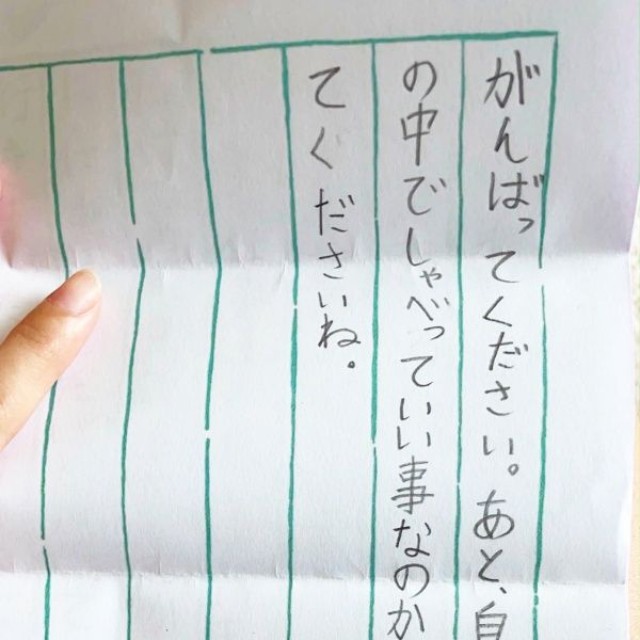 がんばってください。あと、自
の中でしゃべっていい事なのか
てくださいね。